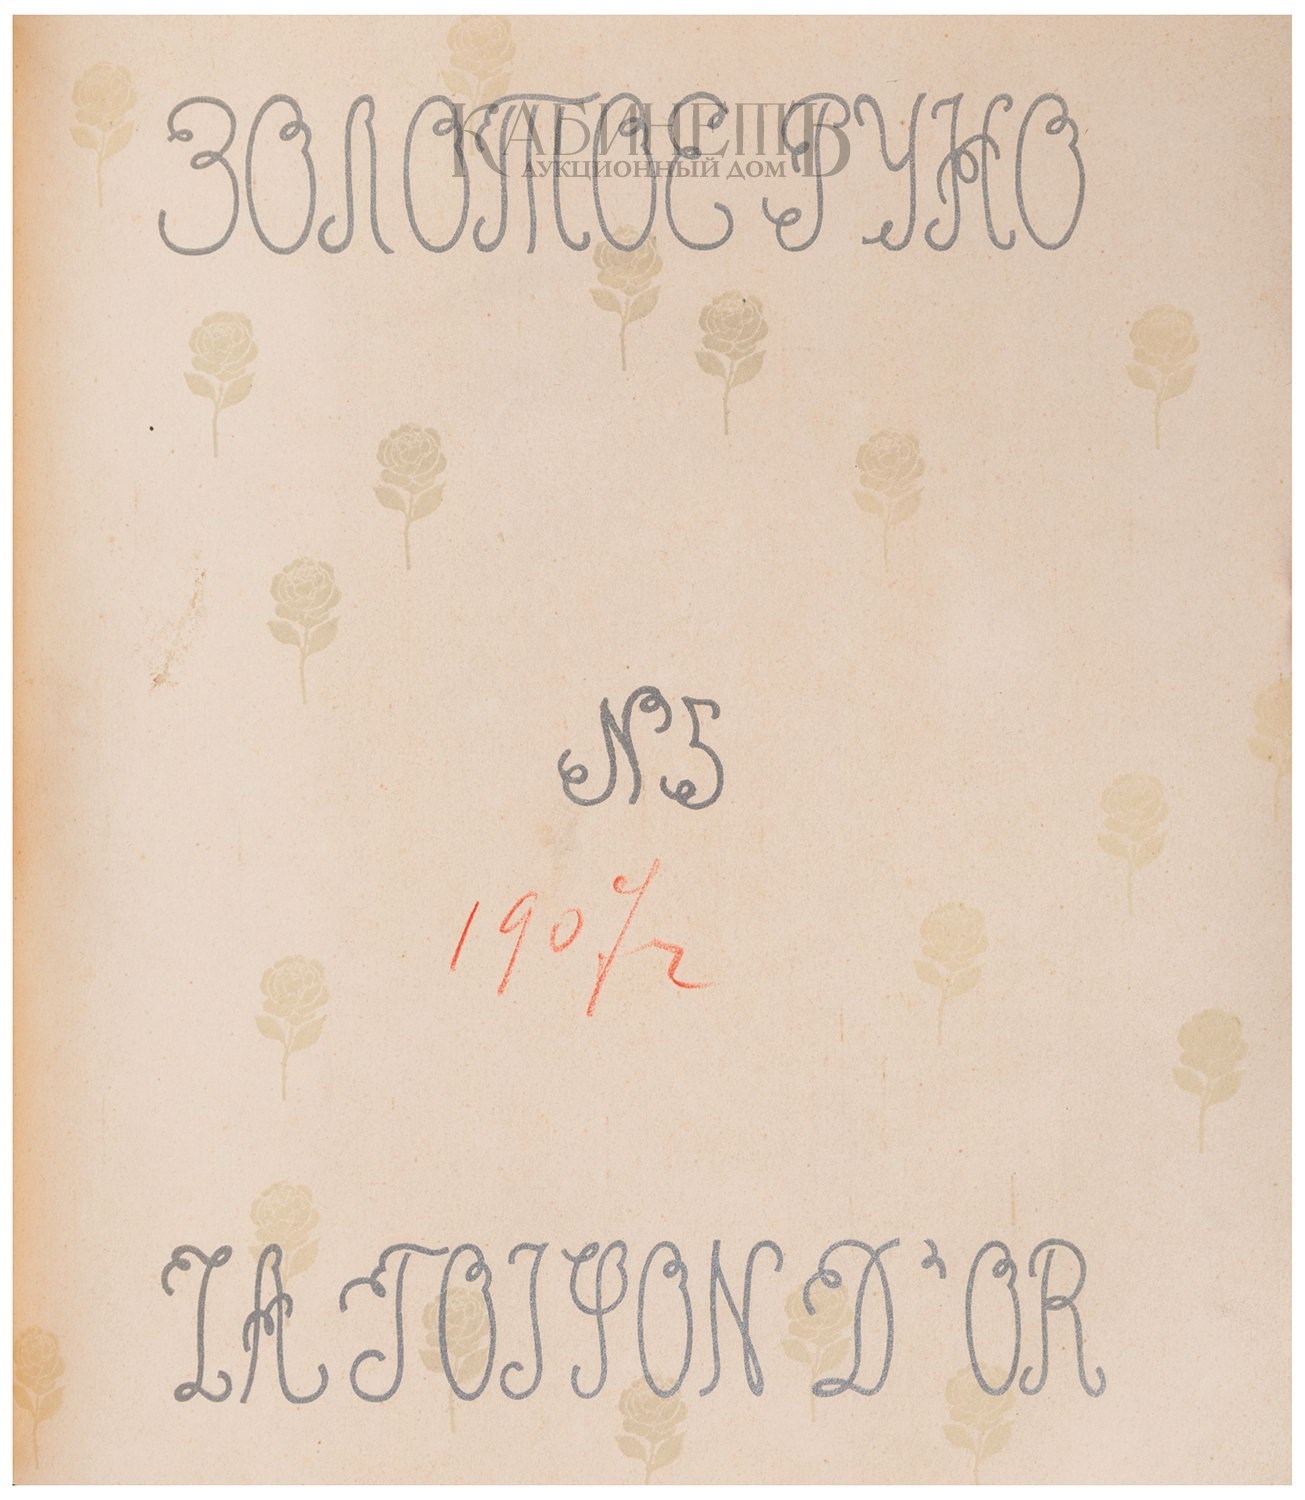 ЗОЛОТОЕ РУНО
КАБИНЕТЪ
АУКЦИОННЫЙ ДОМ
N 5
1907 г
LA TOISON D'OR